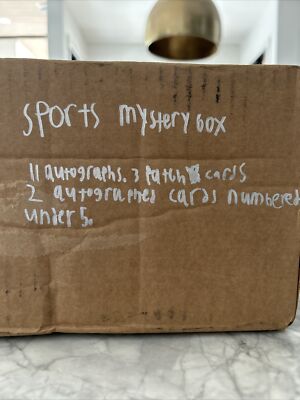 sports mystery box
11 autographs. 3 patch cards
2 autographed cards numbered
under 5.